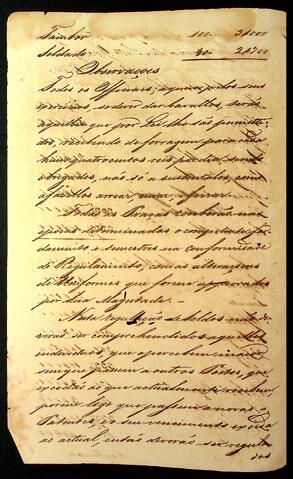 Tambor 100. 3$000
Soldado 90. 2$700
Observações
Todos os Officiaes, a quem pelos seus
exercicios, se dem dar cavallos, serão
aquelles que por Lei lhe são permitti-
dos, recebendo de forragem para cada
hum quatrocentos reis por dia, sendo
obrigados, não só a sustental-os, como
a fazellos arrear, curar, e ferrar.
Todas as Praças receberão nas
epocas determinadas o competente far-
damento e semestres na conformidade
do Regulamento, com as alterações
de Uniformes que forem approvadas
por Sua Magestade.
Nesta regulação de Soldos não de-
verão ser comprehendidos aquelles
individuos que a perceberem
passem a outros Postos, que
excedão ao que actualmente recebem,
porem logo que passem a novas
Patentes, e o seu vencimento exceda
ao actual, então deverão ser regula
dos